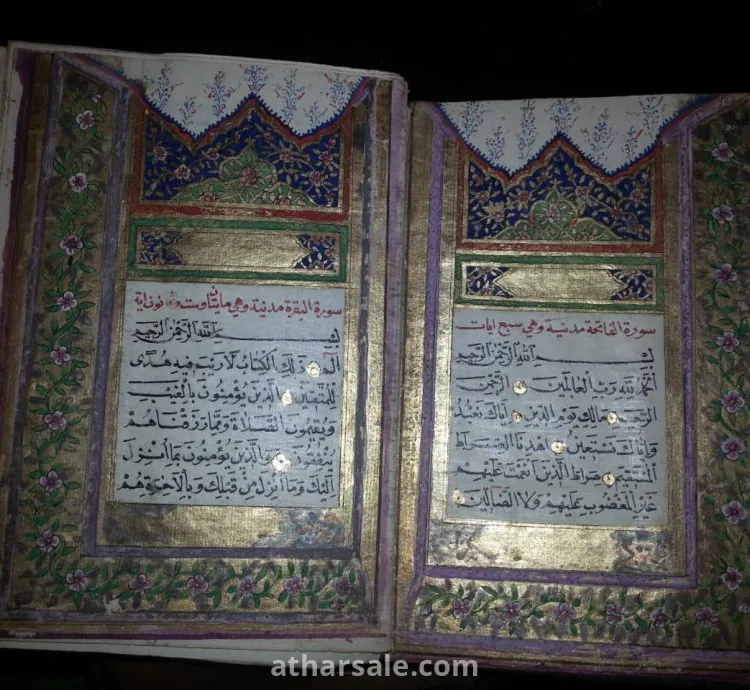 سورة الفاتحة مدنية وهي سبع ايات
بِسْمِ اللهِ الرَّحْمٰنِ الرَّحِيمِ
اَلْحَمْدُ لِلّٰهِ رَبِّ الْعَالَمِينَ الرَّحْمٰنِ
الرَّحِيمِ مَالِكِ يَوْمِ الدِّينِ اِيَّاكَ نَعْبُدُ
وَاِيَّاكَ نَسْتَعِينُ اِهْدِنَا الصِّرَاطَ
الْمُسْتَقِيمَ صِرَاطَ الَّذِينَ اَنْعَمْتَ عَلَيْهِمْ
غَيْرِ الْمَغْضُوبِ عَلَيْهِمْ وَلَا الضَّالِّينَ
سورة البقرة مدنية وهي مايتان وستة اية
بِسْمِ اللهِ الرَّحْمٰنِ الرَّحِيمِ
الٓمٓ ذٰلِكَ الْكِتَابُ لَا رَيْبَ فِيهِ هُدًى
لِلْمُتَّقِينَ الَّذِينَ يُؤْمِنُونَ بِالْغَيْبِ
وَيُقِيمُونَ الصَّلَاةَ وَمِمَّا رَزَقْنَاهُمْ
يُنْفِقُونَ وَالَّذِينَ يُؤْمِنُونَ بِمَا اُنْزِلَ
اِلَيْكَ وَمَا اُنْزِلَ مِنْ قَبْلِكَ وَبِالْاٰخِرَةِ هُمْ
atharsale.com